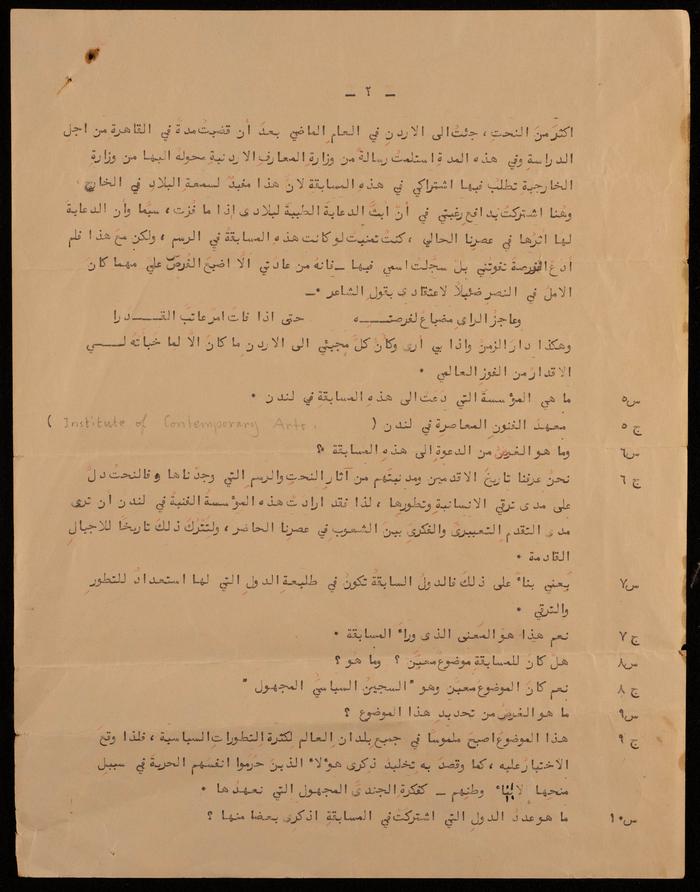 — ٢ —
اكثر من النحت ، جئت الى الاردن في العام الماضي بعد أن قضيت مدة في القاهرة من اجل
الدراسة وفي هذه المدة استلمت رسالة من وزارة المعارف الاردنية محولة اليها من وزارة
الخارجية تطلب فيها اشتراكي في هذه المسابقة لان هذا مفيدٌ لسمعة البلاد في الخارج
وهنا اشتركت بدافع رغبتي في أن ابثّ الدعاية الطيبة لبلادى إذا ما فزت ، سيّما وأن الدعاية
لها اثرُها في عصرنا الحالي ، كنت تمنيت لو كانت هذه المسابقة في الرسم ، ولكن مع هذا فلم
أدع الفرصة تفوتني بل سجلت اسمي فيها — فانه من عادتي ألا اضيع الفرص علي مهما كان
الامل في النصر ضئيلاً لاعتقادى بقول الشاعر •—
وعاجز الراى مضياع لفرصتـــه حتى اذا فات امر عاتب القـــدرا
وهكذا دار الزمن واذا بي أرى وكأن كلّ مجيئي الى الاردن ما كان الاّ لما خبأته لـــي
الاقدار من الفوز العالمي •
س٥ ما هي المؤسسة التي دعت الى هذه المسابقة في لندن •
ج ٥ معهد الفنون المعاصرة في لندن ( Institute of Contemporary Arts. )
س٦ وما هو الغرض من الدعوة الى هذه المسابقة ؟
ج ٦ نحن عرفنا تاريخ الاقدمين ومدنيتهم من آثار النحت والرسم التي وجدناها فالنحت دلّ
على مدى ترقي الانسانية وتطورها ، لذا فقد ارادت هذه المؤسسة الفنية في لندن ان ترى
مدى التقدم التعبيرى والفكرى بين الشعوب في عصرنا الحاضر ، ولتترك ذلك تاريخًا للاجيال
القادمة •
س٧ يعني بناءً على ذلك فالدول السابقة تكون في طليعة الدول التي لها استعدادٌ للتطور
والترقي •
ج ٧ نعم هذا هو المعنى الذى وراء المسابقة •
س٨ هل كان للمسابقة موضوع معيّن ؟ وما هو ؟
ج ٨ نعم كان الموضوع معيّن وهو "السجين السياسيُّ المجهول "
س٩ ما هو الغرض من تحديد هذا الموضوع ؟
ج ٩ هذا الموضوع اصبح ملموسًا في جميع بلدان العالم لكثرة التطورات السياسية ، فلذا وقع
الاختيار عليه ، كما وقصد به تخليد ذكرى هؤلاء الذين حرموا انفسهم الحرية في سبيل
منحها لابناء وطنهم — كفكرة الجندى المجهول التي نعهدها •
س١٠ ما هو عدد الدول التي اشتركت في المسابقة اذكرى بعضا منها ؟